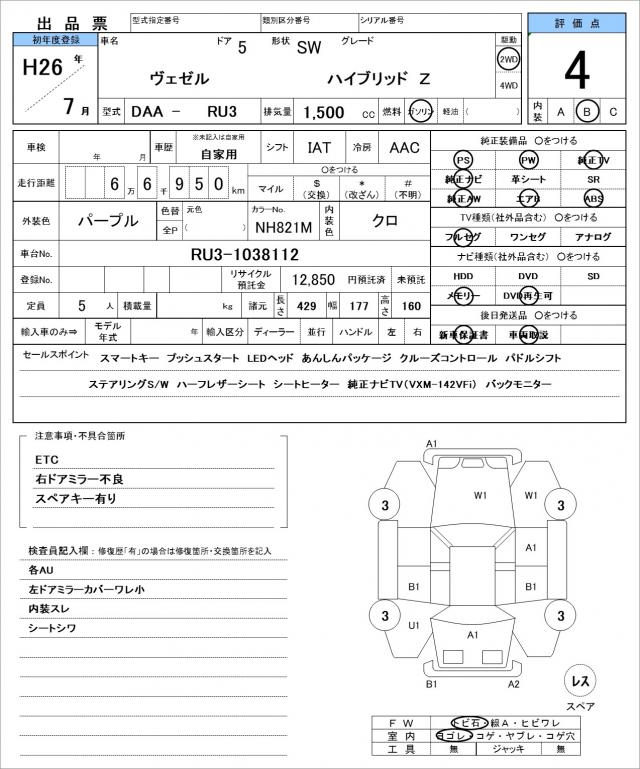 出品票 型式指定番号 類別区分番号 シリアル番号 評価点
初年度登録 車名 ドア 5 形状 SW グレード 駆動
H26 年 ヴェゼル ハイブリッド Z 2WD 4
7 月 4WD
型式 DAA - RU3 排気量 1,500 cc 燃料 ガソリン 軽油 ( ) 内装 A B C
車検 年 月 車歴 ※未記入は自家用 自家用 シフト IAT 冷房 AAC 純正装備品 〇をつける
走行距離 6 万 6 千 9 5 0 km 〇をつける マイル $ (交換) * (改ざん) # (不明)
PS PW 純正TV
純正ナビ 革シート SR
純正AW エアB ABS
外装色 パープル 色替 元色 全P ( ) カラーNo. NH821M 内装色 クロ
TV種類(社外品含む) 〇をつける
フルセグ ワンセグ アナログ
車台No. RU3-1038112 ナビ種類(社外品含む) 〇をつける
登録No. リサイクル預託金 12,850 円預託済 未預託 HDD DVD SD
定員 5 人 積載量 kg 諸元 長さ 429 幅 177 高さ 160 メモリー DVD再生可
後日発送品 〇をつける
輸入車のみ⇒ モデル年式 年 輸入区分 ディーラー 並行 ハンドル 左 右 新車保証書 車両取説
セールスポイント スマートキー プッシュスタート LEDヘッド あんしんパッケージ クルーズコントロール パドルシフト
ステアリングS/W ハーフレザーシート シートヒーター 純正ナビTV(VXM-142VFi) バックモニター
注意事項・不具合箇所
ETC
右ドアミラー不良
スペアキー有り
検査員記入欄：修復歴「有」の場合は修復箇所・交換箇所を記入
各AU
左ドアミラーカバーワレ小
内装スレ
シートシワ
A1
W1 W1
3 3
A1
B1 B1
3 U1 A1 3
B1 A2
レス
スペア
FW トビ石・線A・ヒビワレ
室内 ヨゴレ・コゲ・ヤブレ・コゲ穴
工具 無 ジャッキ 無